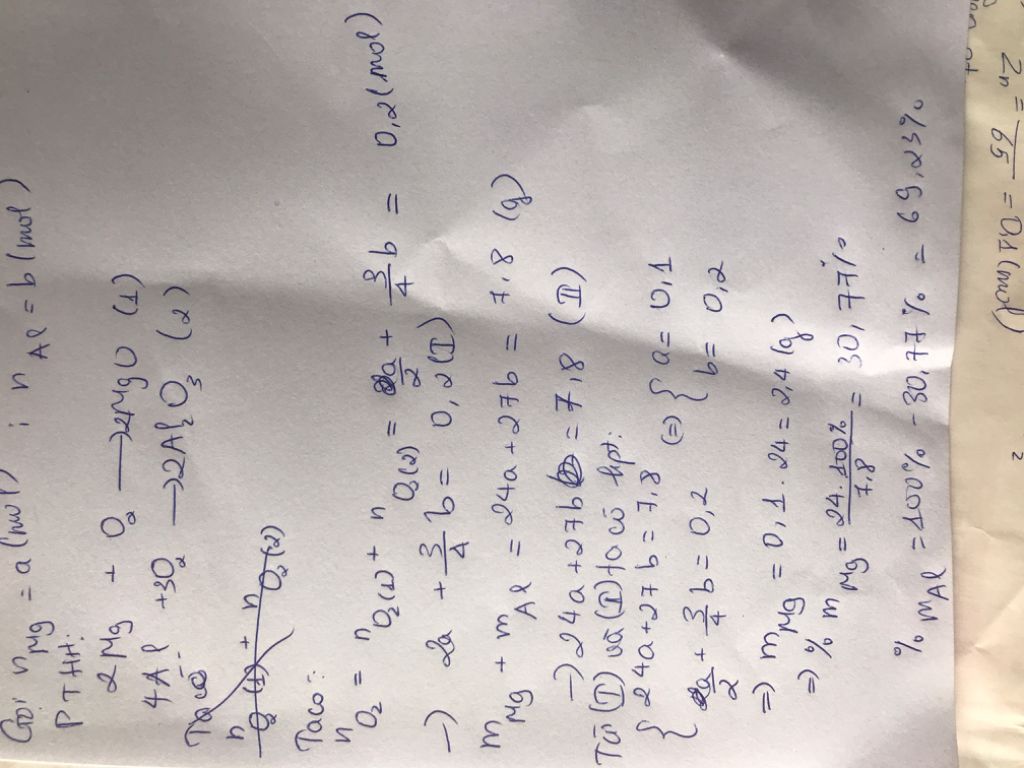 Gọi n Mg = a (mol) ; n Al = b (mol)
PTHH:
2Mg + O2 → 2MgO (1)
4Al + 3O2 → 2Al2O3 (2)
Ta có:
n O2 (1) + n O2 (2)
Ta có:
n O2 = n O2 (1) + n O2 (2) = a/2 + 3/4 b = 0,2 (mol)
→ 2a + 3/4 b = 0,2 (I)
m Mg + m Al = 24a + 27b = 7,8 (g)
→ 24a + 27b = 7,8 (II)
Từ (I) và (II) ta có hpt:
{ 24a + 27b = 7,8
a/2 + 3/4 b = 0,2 (=) { a = 0,1
b = 0,2
=> m Mg = 0,1 . 24 = 2,4 (g)
=> % m Mg = 24.100% / 7,8 = 30,77%
% m Al = 100% - 30,77% = 69,23%
Zn = / 65 = 0,1 (mol)
2